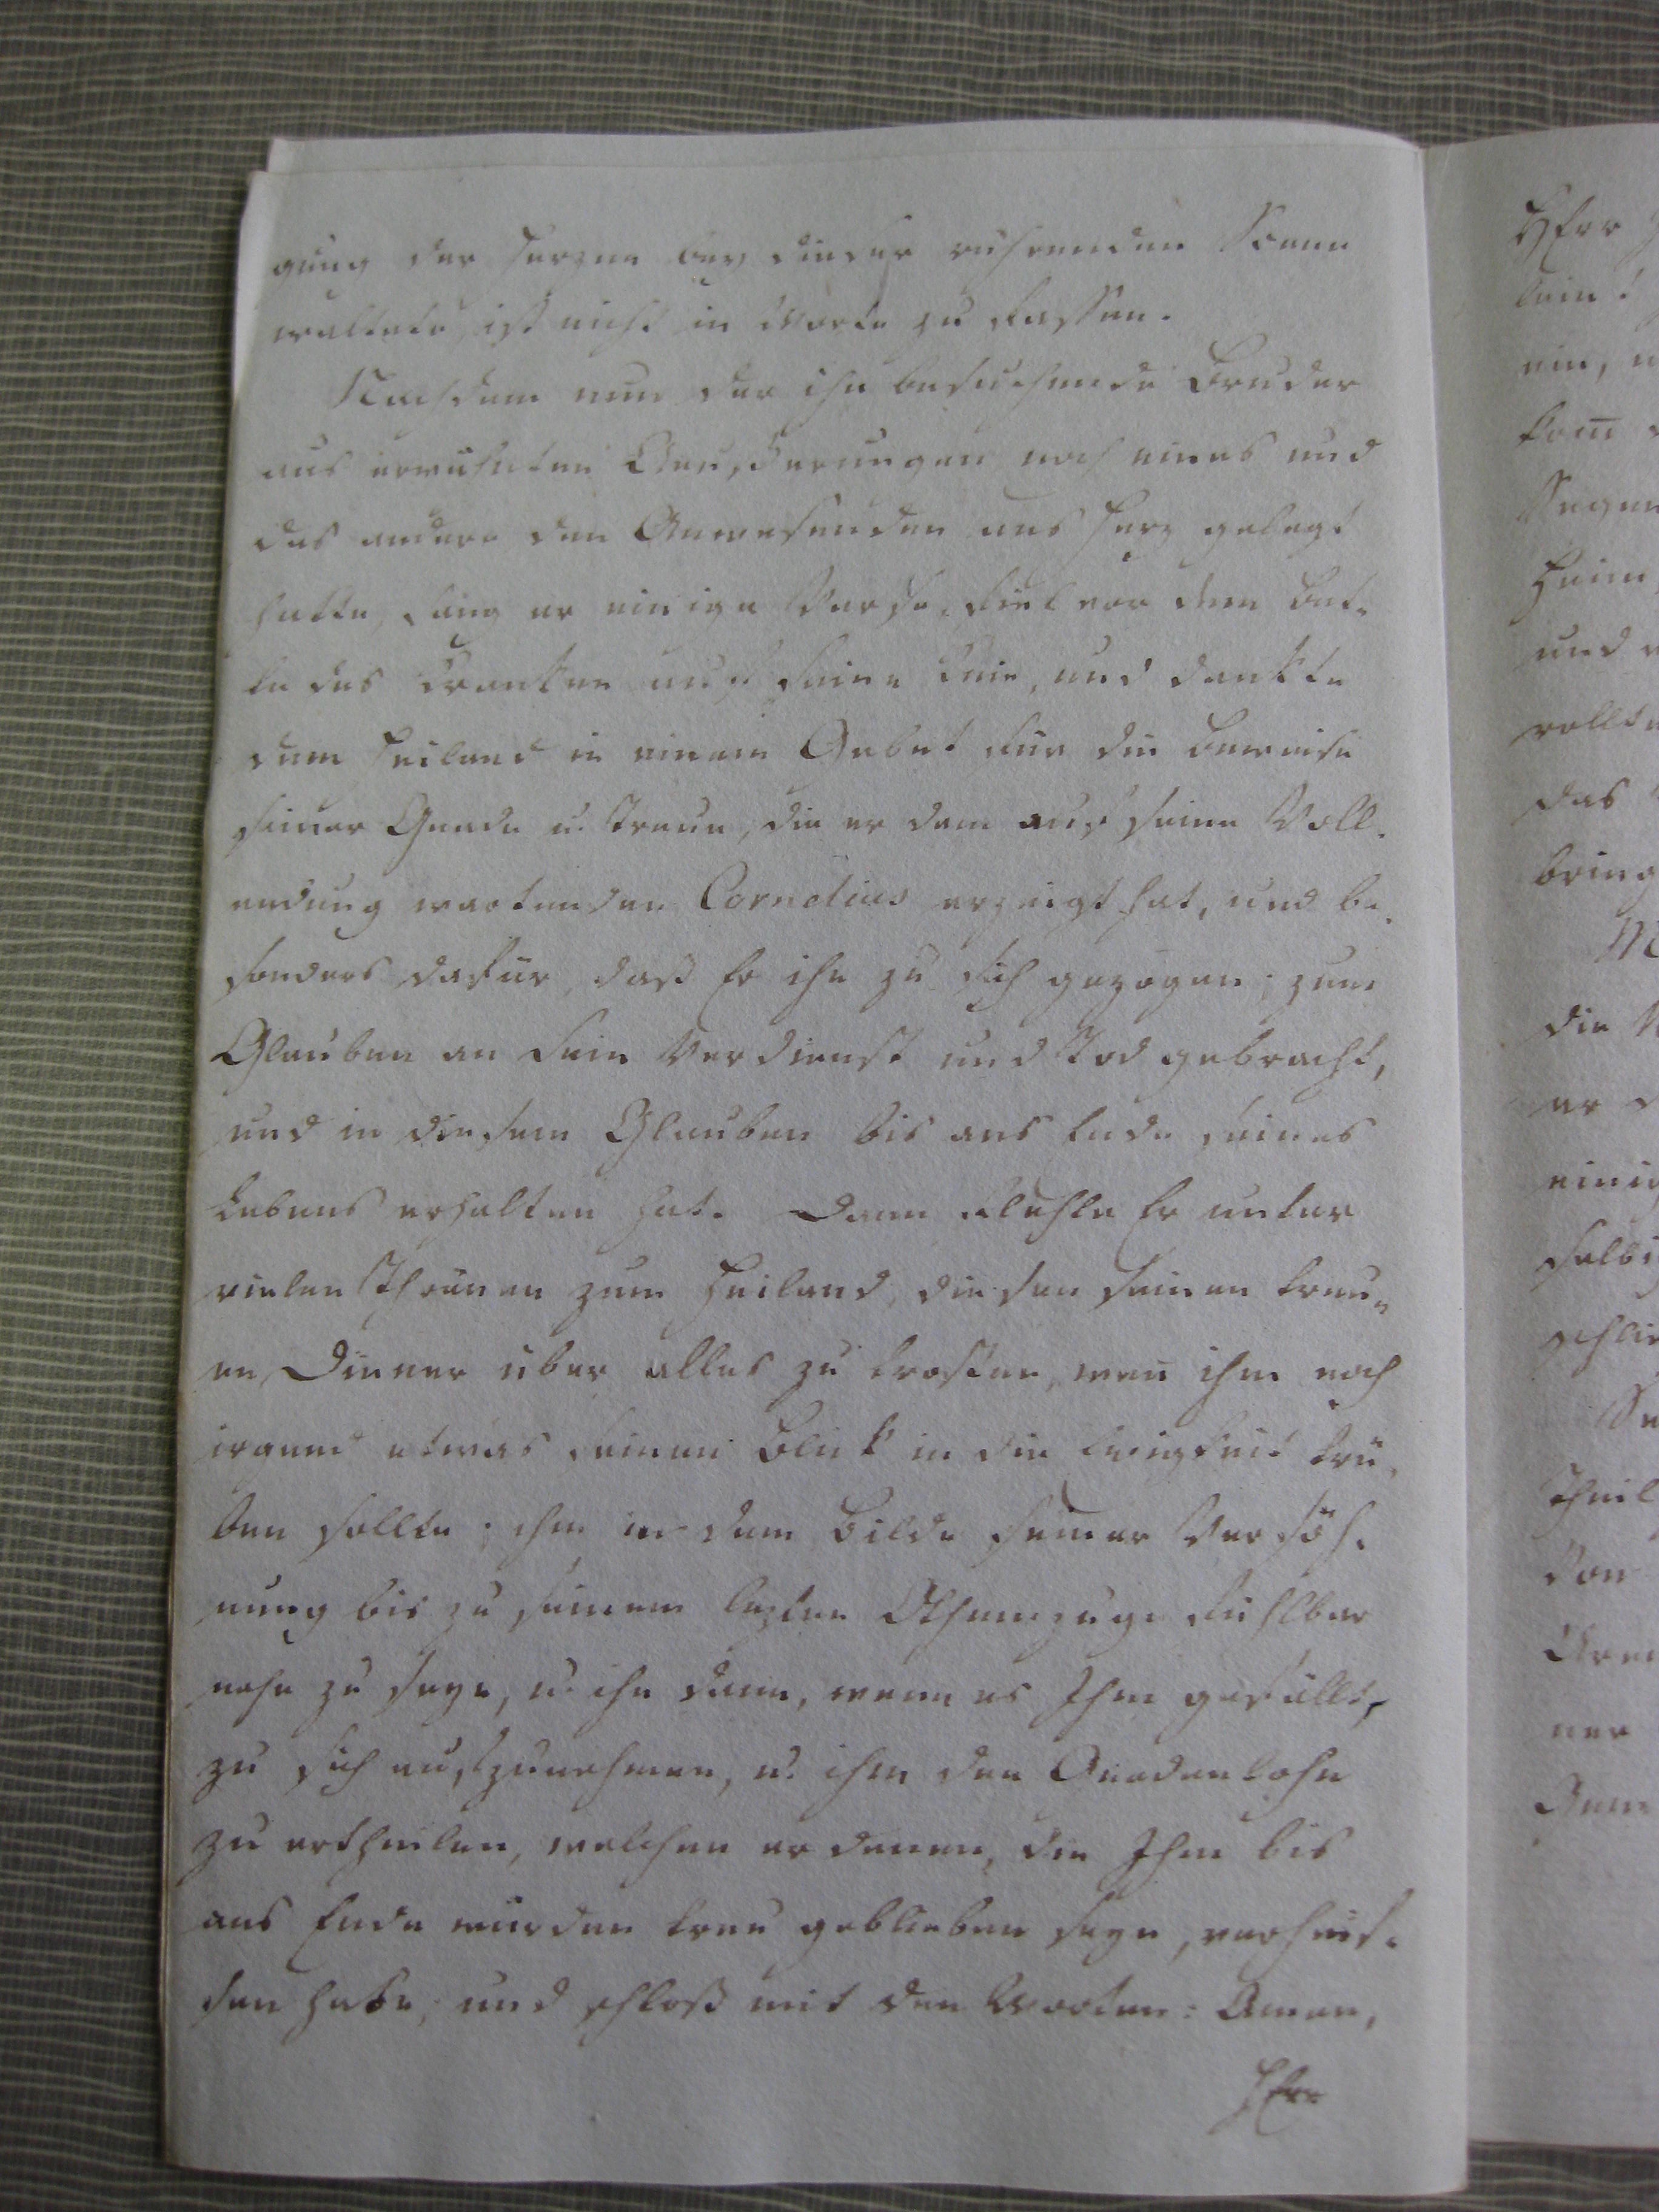 gung der Herzen bey dieser rührenden Scene
waltete, ist nicht in Worte zu fassen.
Nachdem nun der ihn besuchende Bruder
aus erwähnten Aeusserungen noch eines und
das andere den Anwesenden ans Herz gelegt
hatte, sang er einige Verse, fiel vor dem Bet-
te des Kranken auf seine Knie, und dankte
dem Heiland in einem Gebet für die Beweise
seiner Gnade u. Treue, die er dem auf seine Voll-
endung wartenden Cornelius erzeigt hat, und be-
sonders dafür, daß Er ihn zu sich gezogen, zum
Glauben an sein Verdienst und Tod gebracht,
und in diesem Glauben bis ans Ende seines
Lebens erhalten hat. Dann flehte Er unter
vielen Thränen zum Heiland, diesen seinen treu-
en Diener über alles zu trösten, wen̄ ihm noch
irgend etwas seinen Blik in die Ewigkeit trü-
ben sollte; ihm in dem Bilde seiner Versöh-
nung bis zu seinem lezten Othemzuge fühlbar
nahe zu seyn, u. ihn dann, wenn es Ihm gefällt,
zu sich aufzunehmen, u. ihm den Gnadenlohn
zu ertheilen, welchen er denen, die Ihm bis
ans Ende würden treu geblieben seyn, verheis-
sen habe; und schloß mit den Worten: Amen,
HErr
HErr
ein,
kom̄
Segen
Heim
und
wollte
das
bring
die
er
einig
selbi
schlie
Theil
Von
ner